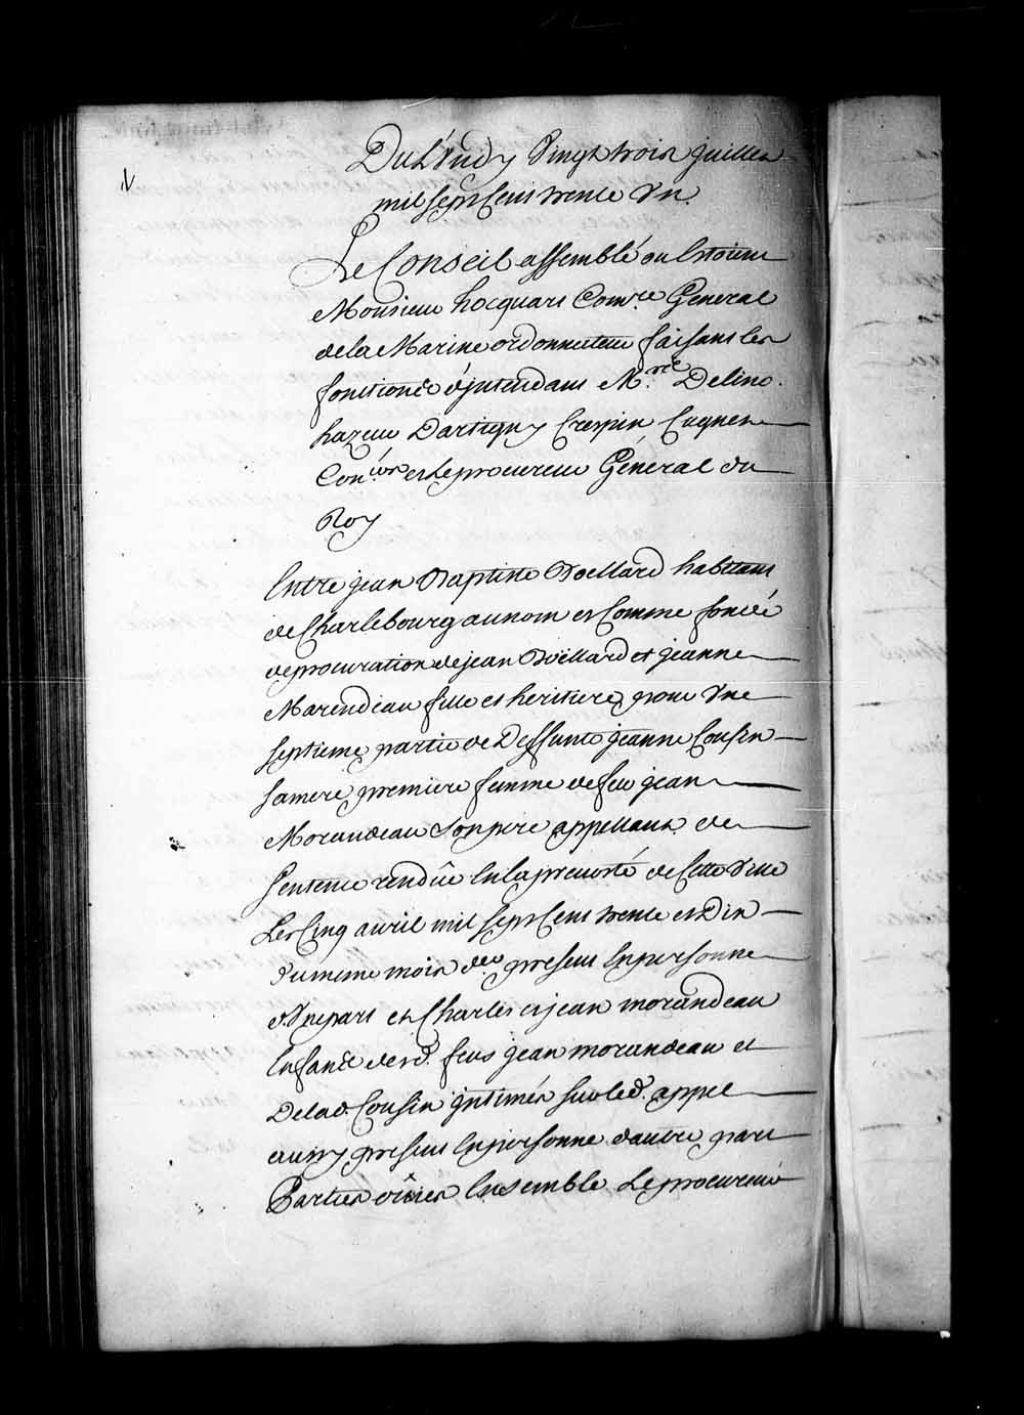 Du Lundy Vingt trois juillet
mil sept Cent trente Un.
Le Conseil assemblé ou Estoient
Monsieur hocquart Com.re General
de la Marine ordonnateur faisant les
fonctions d'jntendant M.rs Delino
hazeur Dartigny Crespin Cugnet
Con.ers et Le procureur Général du
Roy
Entre jean Baptiste Boettard habitant
de Charlebourg au nom et Comme fondé
de procuration de jean Boettard et jeanne
Marendeau fille et heritiere pour Une
septieme partie de Deffunte jeanne Cousin
sa mere, premiere femme de feu jean
Morandeau son pere appellant de
Sentence rendüe En la prevosté de Cette Ville
Les Cinq avril mil sept Cent trente et Dix
du meme mois der. present En personne
d'Une part et Charles et jean morandeau
Enfans desd. feus jean morandeau et
De lad. Cousin jntimés sur led. appel
aussy present En personne d'autre part
Parties oüies Ensemble Le procureur